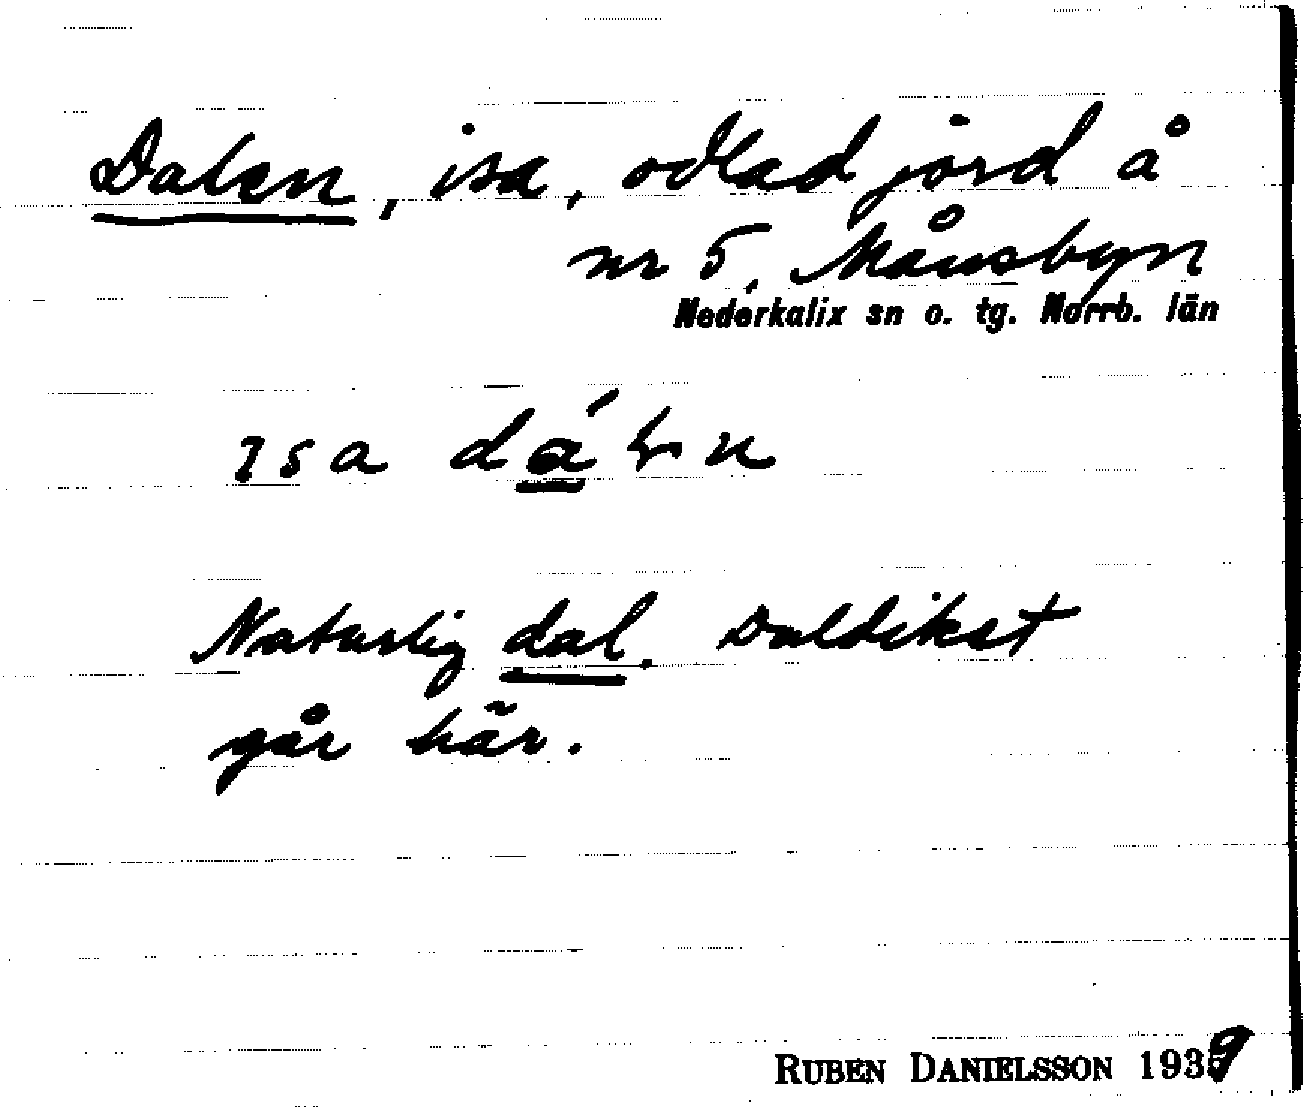 Dalen, isa, odlad jord å
nr 5, Månsbyn
Nederkalix sn o. tg. Norrb. län
ɩsa
Naturlig dal. Daldiket
går här.
RUBEN DANIELSSON 1939